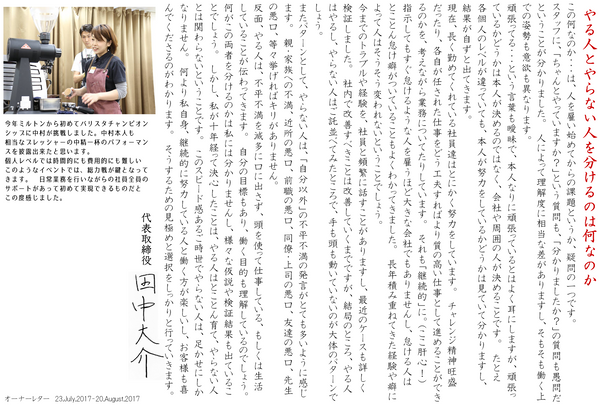 やる人とやらない人を分けるのは何なのか
この何なのか・・は、人を雇い始めてからの課題というか、疑問の一つです。
スタッフに、「ちゃんとやっていますか?」という質問も、「分かりましたか?」の質問も愚問だ
ということが分かりました。 人によって理解度に相当な差がありますし、そもそも働く上
での姿勢も意欲も異なります。
頑張ってる・・という言葉も曖昧で、本人なりに頑張っているとはよく耳にしますが、頑張っ
ているかどうかは本人が決めるのではなく、会社や周囲の人が決めることです。 たとえ
各個人のレベルが違っていても、本人が努力をしているかどうかは見ていて分かりますし、
結果が自ずと出てきます。
現在、長く勤めてくれている社員達はとにかく努力をしています。 チャレンジ精神旺盛
だったり、各自が任された仕事をどう工夫すればより質の高い仕事として進めることができ
るのかを、考えながら業務についてたりしています。 それも「継続的に」。(ここ肝心!)
指示してもすぐ怠けるような人を雇うほど大きな会社でもありませんし、怠ける人は
とことん怠け癖がついていることもよくわかってきました。 長年積み重ねてきた経験や癖に
よって人はそうそう変われないということでしょう。
今までのトラブルや経験を、社員と頻繁に話すことがありますし、最近のケースも詳しく
検証しました。 社内で改善すべきことは改善していくまでですが、結局のところ、やる人
はやるし、やらない人は「託並べてみたところで、手も頭も動いていないのが大体のパターンで
しょう。
またパターンとして、やらない人は、「自分以外」の不平不満の発言がとても多いように感じ
ます。 親、家族への不満、近所の悪口、前職の悪口、同僚・上司の悪口、友達の悪口、先生
の悪口、等々挙げればキリがありません。
反面、やる人は、不平不満を滅多に口に出さず、頭を使って仕事している、もしくは生活
していることが伝わってきます。 自分の目標もあり、働く目的も理解しているのでしょう。
何がこの両者を分けるのかは私には分かりませんし、様々な仮説や検証結果も出ているこ
とでしょう。 しかし、私が十年経って決心したことは、やる人はとことん育て、やらない人
とは関わらないということです。 このスピード感ある「時世でやらない人は、足かせにしか
なりません。 何より私自身、継続的に努力している人と働く方が楽しいし、お客様も喜
んでくださるのがわかります。 そうするための見極めと選択をしっかりと行っていきます。
今年ミルトンから初めてバリスタチャンピオン
シップに中村が挑戦しました。中村本人も
相当なプレッシャーの中精一杯のパフォーマン
スを披露出来たと思います。
個人レベルでは時間的にも費用的にも難しい
このようなイベントでは、総力戦が鍵となって
きます。 日常業務を行いながらの社員全員の
サポートがあって初めて実現できるものだと
この度感じました。
代表取締役 田中大介
オーナーレター 23,July,2017-20,August,2017